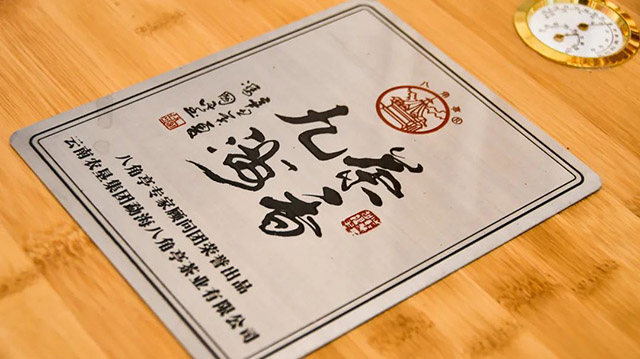 八角亭
九茶
海香
八角亭专家顾问团荣誉出品
云南农垦集团勐海八角亭茶业有限公司